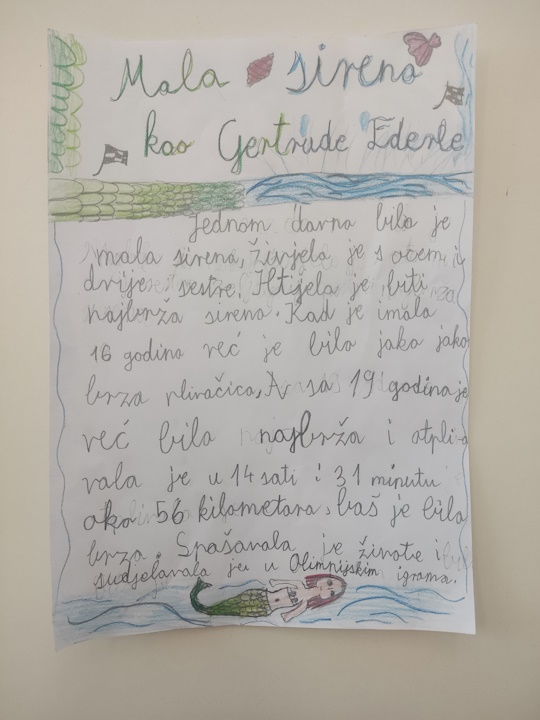 Mala sirena
kao Gertrude Ederle
Jednom davno bila je
mala sirena, živjela je s ocem i
dvije sestre. Htjela je biti
najbrža sirena. Kad je imala
16 godina već je bila jako jako
brza plivačica, A sa 19 godina je
već bila najbrža i otpli
vala je u 14 sati i 31 minutu
oko 56 kilometara, baš je bila
brza. Spašavala je živote i
sudjelovala je u Olimpijskim igrama.